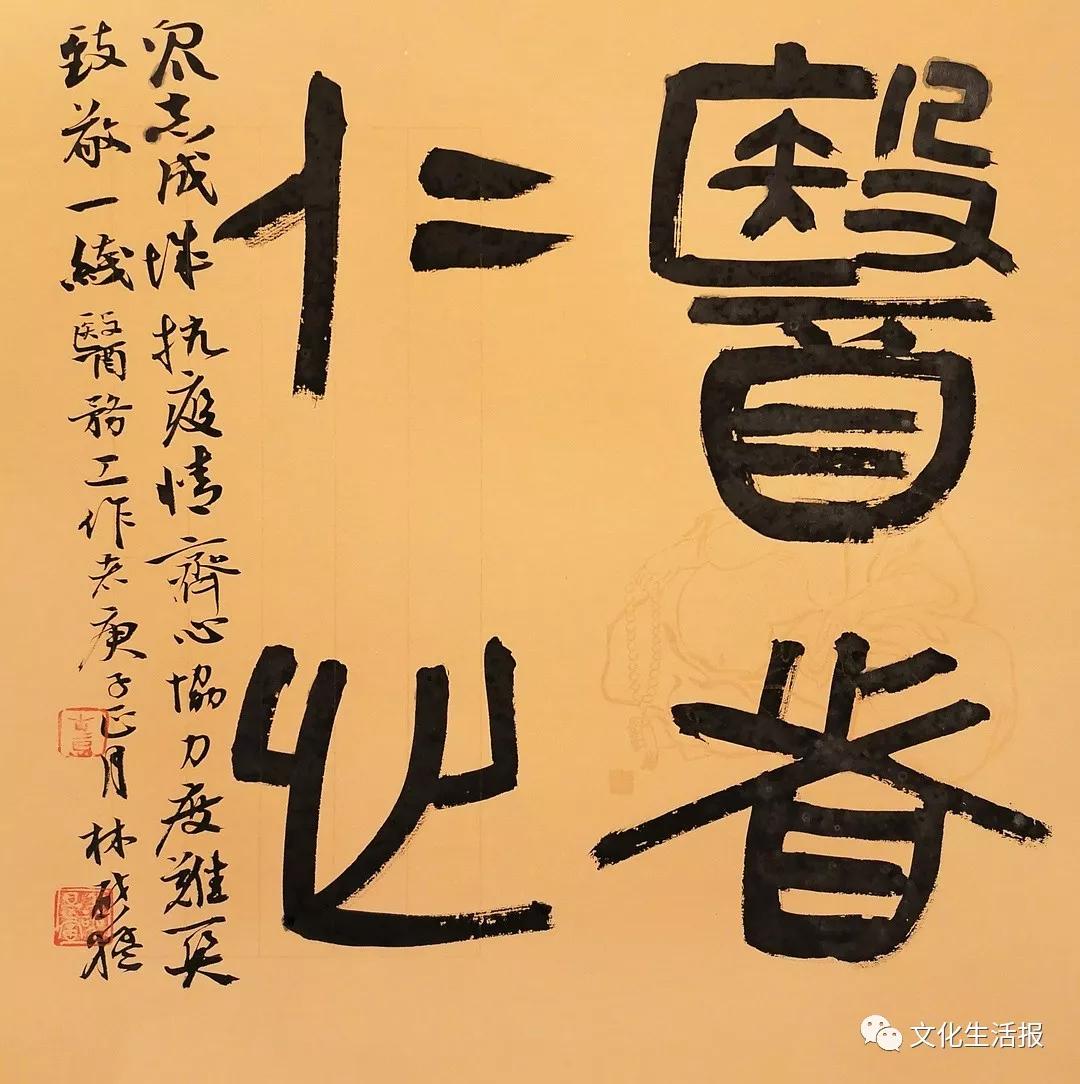 醫者
仁心
眾志成城抗疫情齊心協力度難
致敬一綫醫務工作者庚子正月林
文化生活报